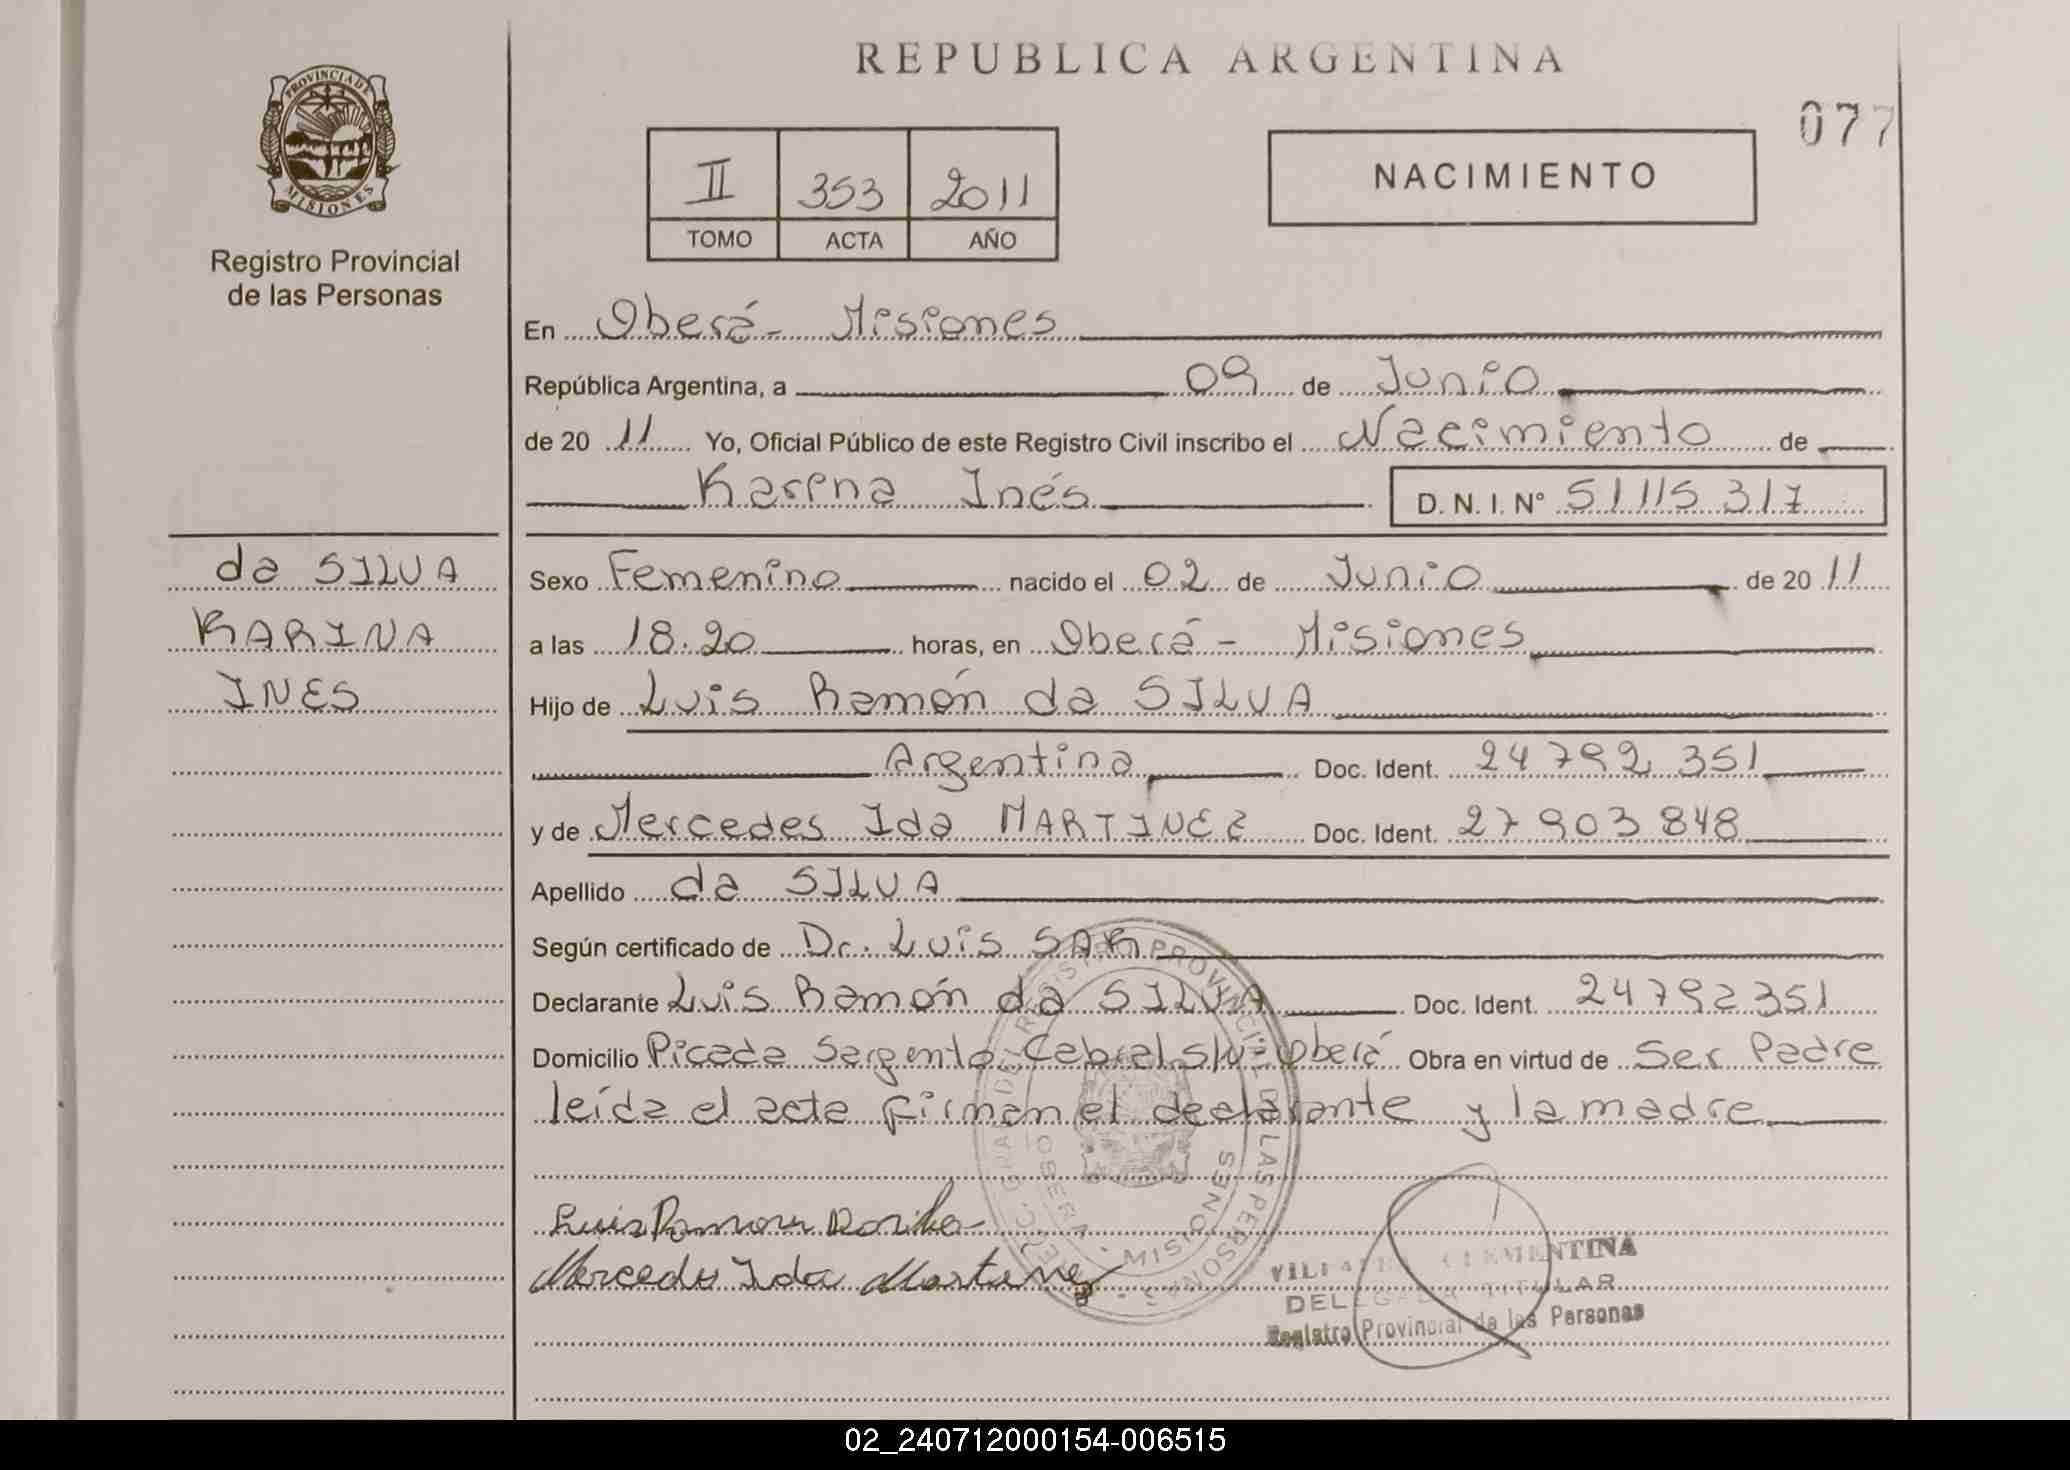 REPUBLICA ARGENTINA
077
PROVINCIA DE MISIONES
Registro Provincial
de las Personas
II 353 2011
TOMO ACTA AÑO
NACIMIENTO
En Oberá - Misiones
República Argentina, a 09 de Junio
de 2011 Yo, Oficial Público de este Registro Civil inscribo el Nacimiento de
Karina Inés D. N. I. N° 51115317
da SILVA
KARINA
INES
Sexo Femenino nacido el 02 de Junio de 2011
a las 18.20 horas, en Oberá - Misiones
Hijo de Luis Ramón da SILVA
Argentina Doc. Ident. 24792351
y de Mercedes Ida MARTINEZ Doc. Ident. 27903848
Apellido da SILVA
Según certificado de Dr. Luis SAR
Declarante Luis Ramón da SILVA Doc. Ident. 24792351
Domicilio Picada Sargento Cabral s/n - Oberá Obra en virtud de Ser Padre
leída el acta firman el declarante y la madre
Mercedes Ida Martinez
CLEMENTINA
DELEGADA TITULAR
Registro Provincial de las Personas
02_240712000154-006515